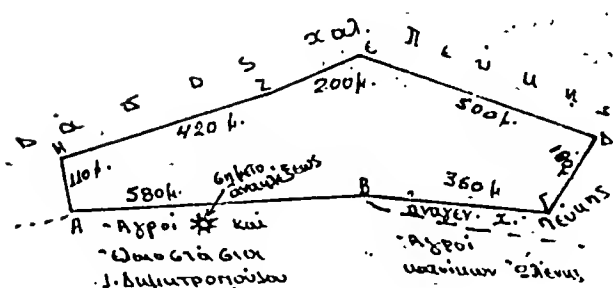 Δάσος χαλ. Πεύκης
Η
Ζ
Ε
Δ
420 μ.
200 μ.
500 μ.
110 μ.
580 μ.
σημείο
αναφλέξεως
360 μ
Α
Β
Γ
Αγροί και
ελαιοστάσιοι
Ι. Δημητροπούλου
αναγεν. χ. πεύκης
Αγροί
κατοίκων Ωλένης